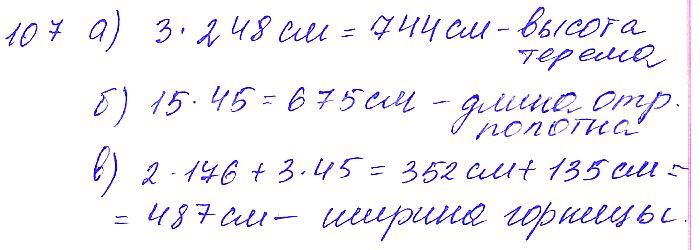 107 а) 3 · 248 см = 744 см - высота
терема
б) 15 · 45 = 675 см - длина отр.
полотна
в) 2 · 176 + 3 · 45 = 352 см + 135 см =
= 487 см - ширина горницы.